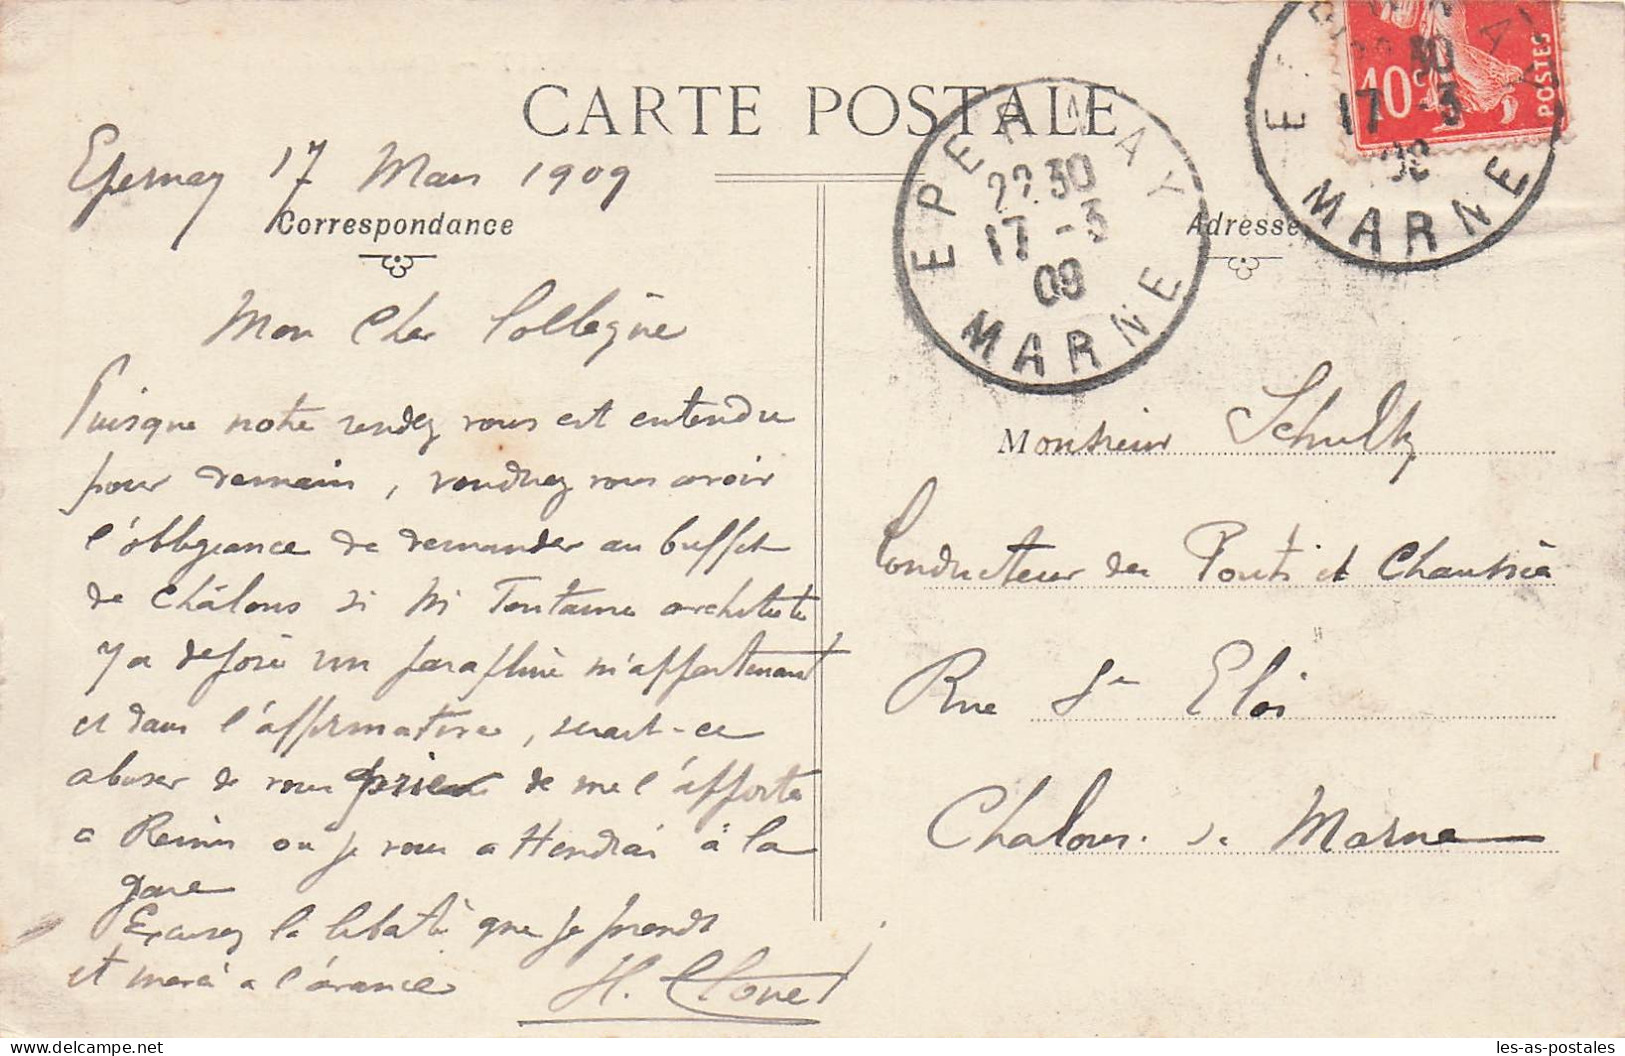 CARTE POSTALE
Epernay 17 Mars 1909
Correspondance
Mon Cher Collègue
Puisque notre rendez vous est entendu
pour demain, voudriez vous avoir
l'obligeance de demander au buffet
de Châlons si Mr Fontaine architecte
y a déposé un parapluie m'appartenant
et dans l'affirmative, serait-ce
abuser de vous prier de me l'apporter
a Reims où je vous attendrai à la
gare
Excusez la liberté que je prends
et merci a l'avance
H. Clouet
EPERNAY
22 30
17 - 3
09
MARNE
Adresse
10c
POSTES
30
17 - 3
09
MARNE
Monsieur Schultz
Conducteur des Ponts et Chaussées
Rue St Eloi
Chalons s. Marne
les-as-postales
www.delcampe.net